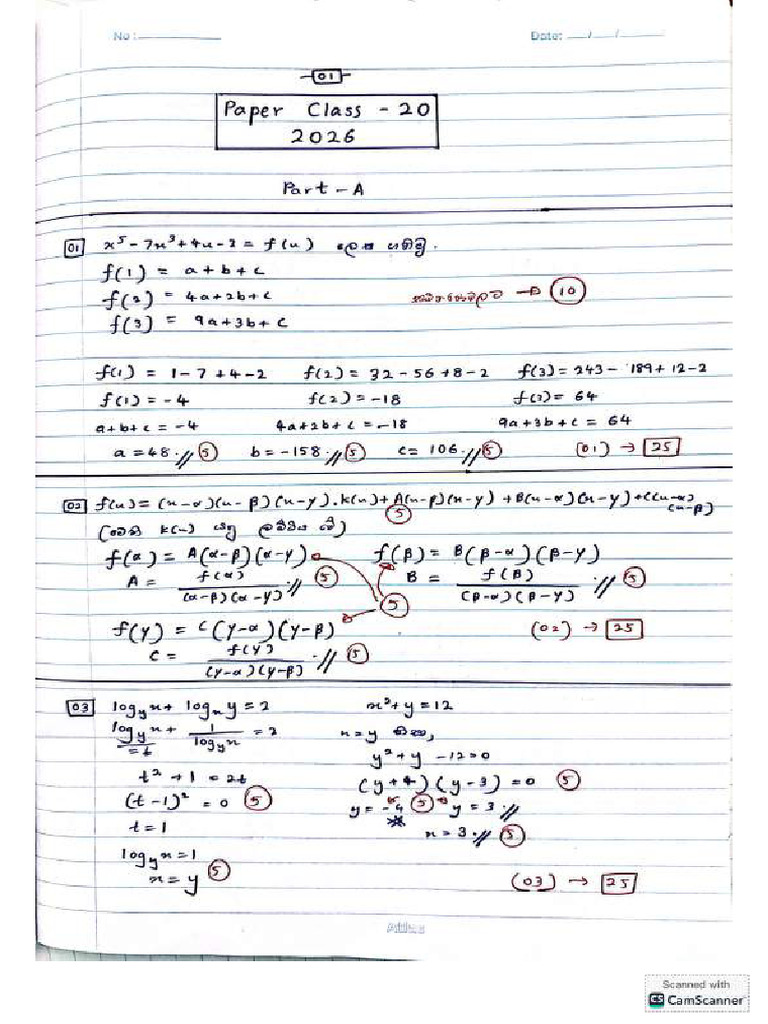 No : Date: / /
01
Paper Class - 20
2026
Part - A
01 x⁵ - 7x³ + 4x - 2 = f(x) ලෙස ගනිමු.
f(1) = a+b+c
f(2) = 4a+2b+c → 10
f(3) = 9a+3b+c
f(1) = 1-7+4-2 f(2) = 32-56+8-2 f(3) = 243-189+12-2
f(1) = -4 f(2) = -18 f(3) = 64
a+b+c = -4 4a+2b+c = -18 9a+3b+c = 64
a = 48 // 5 b = -158 // 5 c = 106 // 5 (01) → 25
02 f(x) = (x-α)(x-β)(x-γ).k(x) + A(x-β)(x-γ) + B(x-α)(x-γ) + C(x-α)(x-β)
5
(මෙහි k(x) යනු ලබ්ධිය වේ)
f(α) = A(α-β)(α-γ) f(β) = B(β-α)(β-γ)
A = f(α) / (α-β)(α-γ) // 5 B = f(β) / (β-α)(β-γ) // 5
5
f(γ) = C(γ-α)(γ-β) (02) → 25
C = f(γ) / (γ-α)(γ-β) // 5
03 log_y x + log_x y = 2 x² + y = 12
log_y x + 1 / log_y x = 2 x = y නිසා,
= t y² + y - 12 = 0
t² + 1 = 2t (y+4)(y-3) = 0 5
(t-1)² = 0 5 y = -4 5 y = 3 //
t = 1 x = 3 // 5
log_y x = 1
x = y 5 (03) → 25
Atlas
Scanned with
CS CamScanner